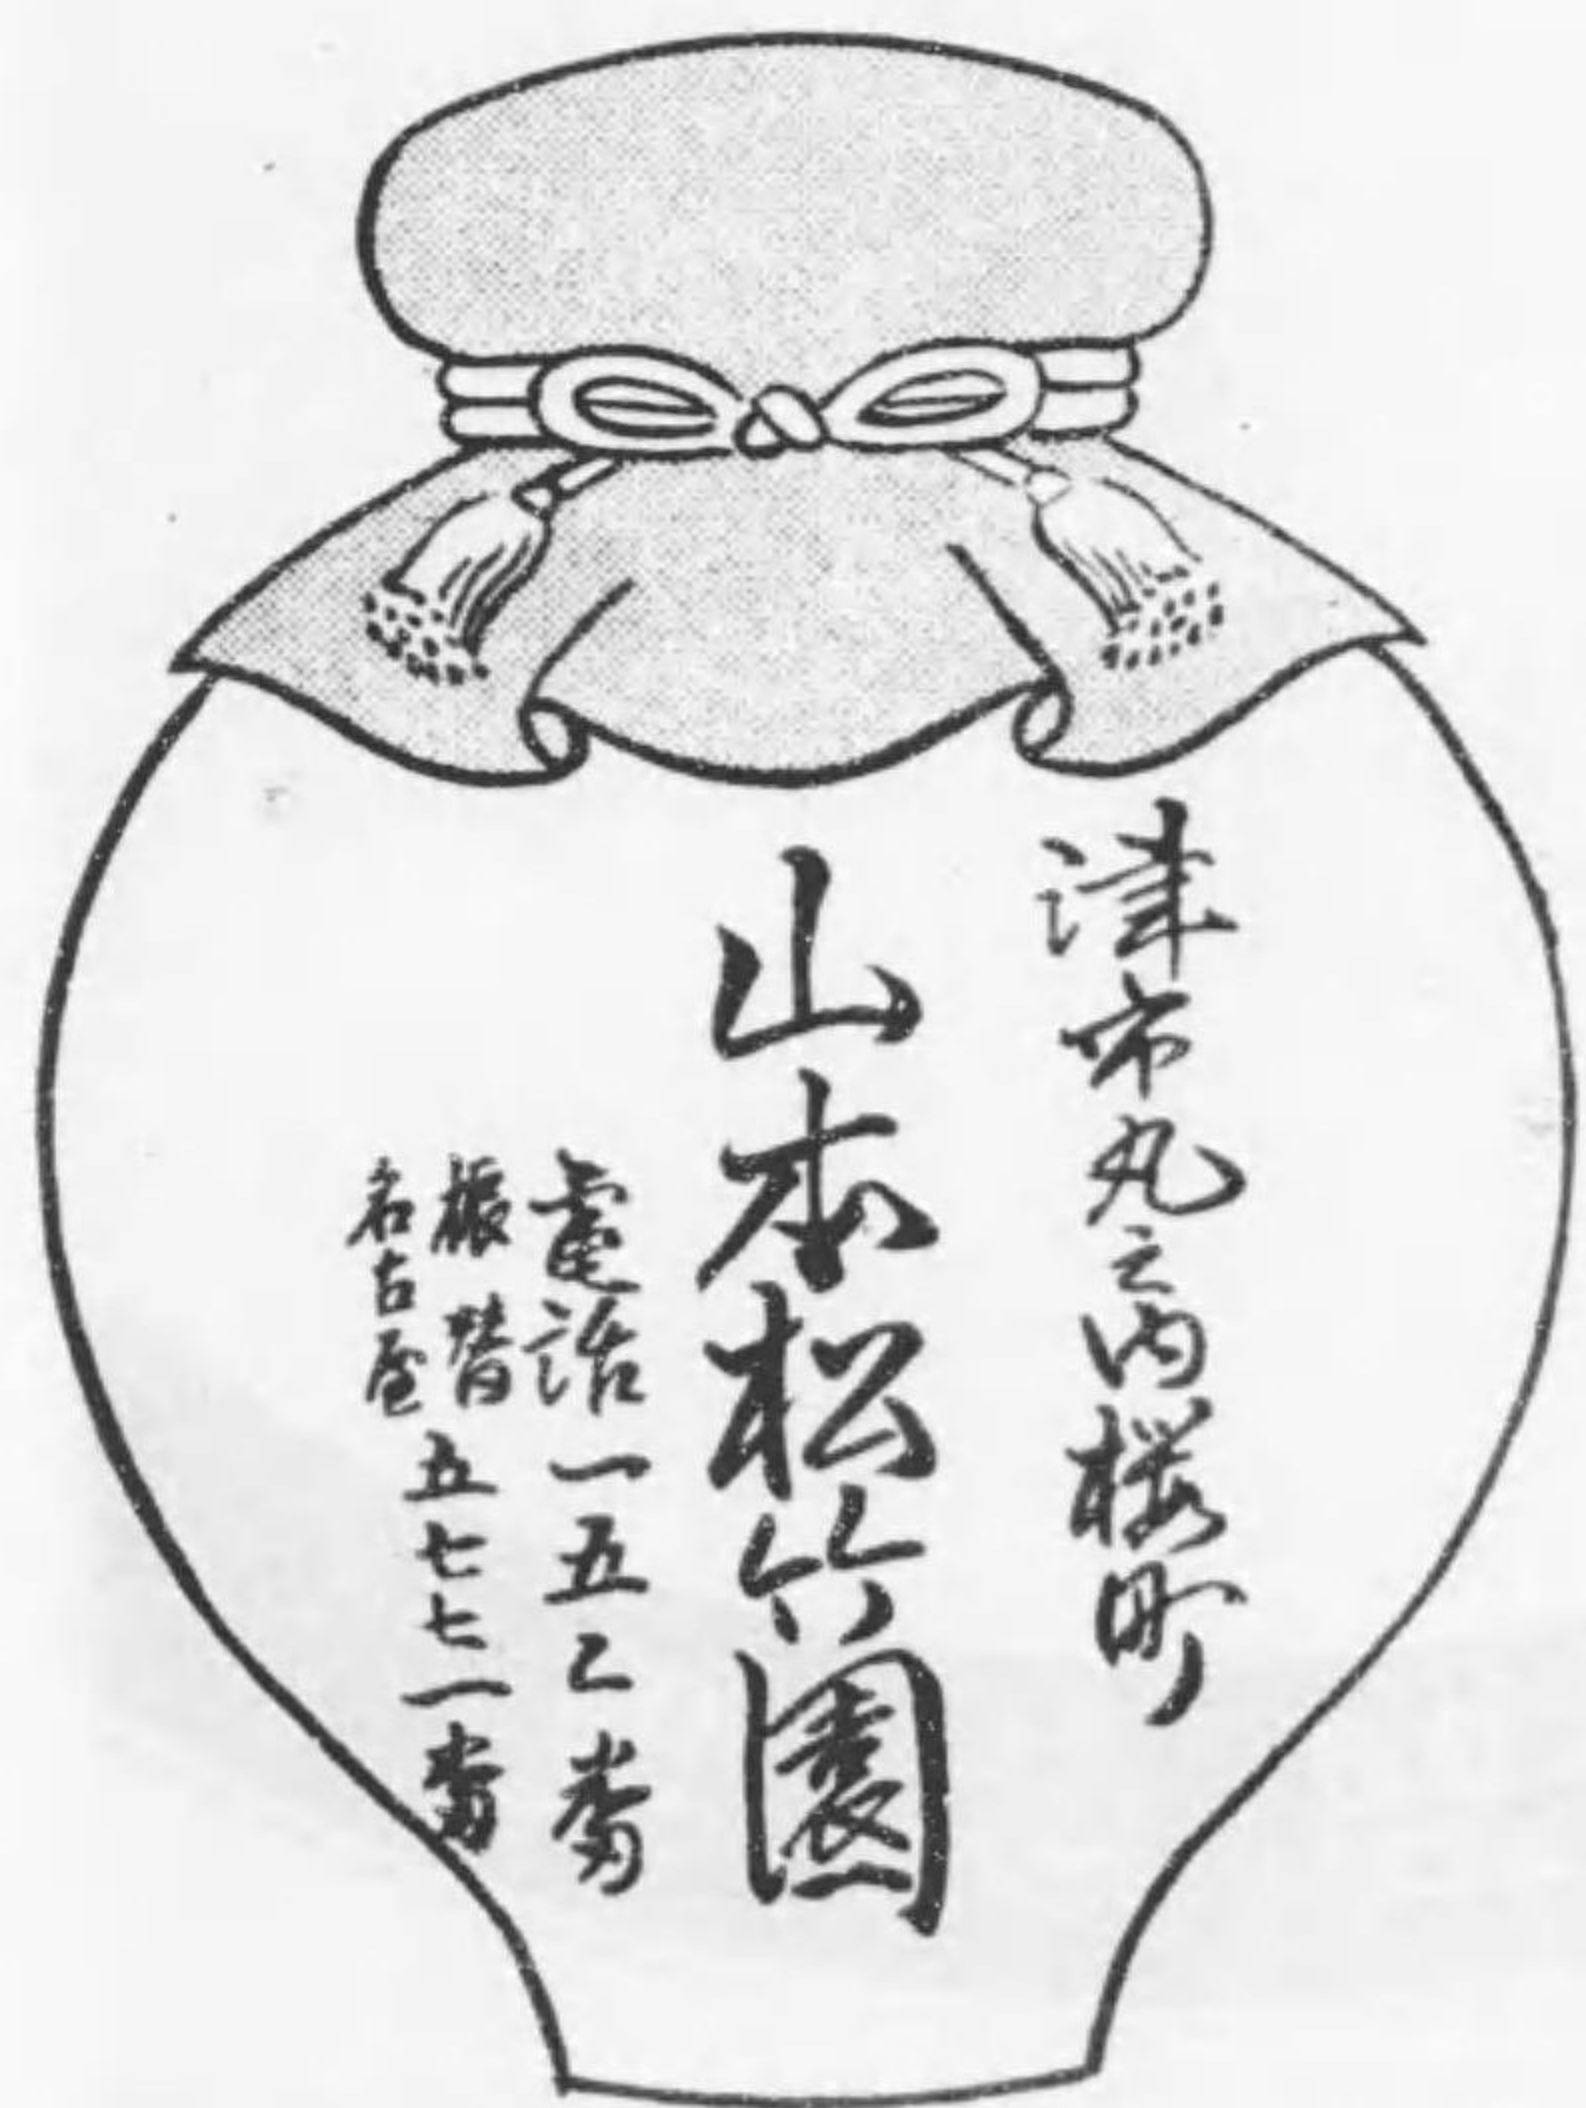 津市丸之内桜町
山本松竹園
電話一五乙番
振替名古屋五七七一番